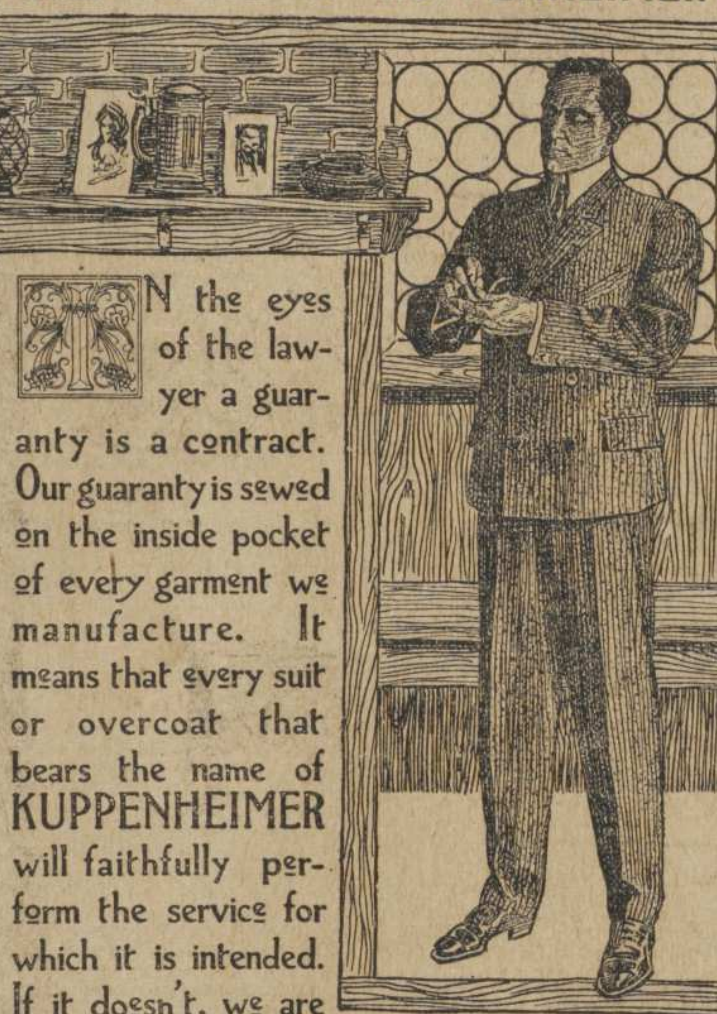 IN the eyes
of the law-
yer a guar-
anty is a contract.
Our guaranty is sewed
on the inside pocket
of every garment we
manufacture. It
means that every suit
or overcoat that
bears the name of
KUPPENHEIMER
will faithfully per-
form the service for
which it is intended.
If it doesn't, we are